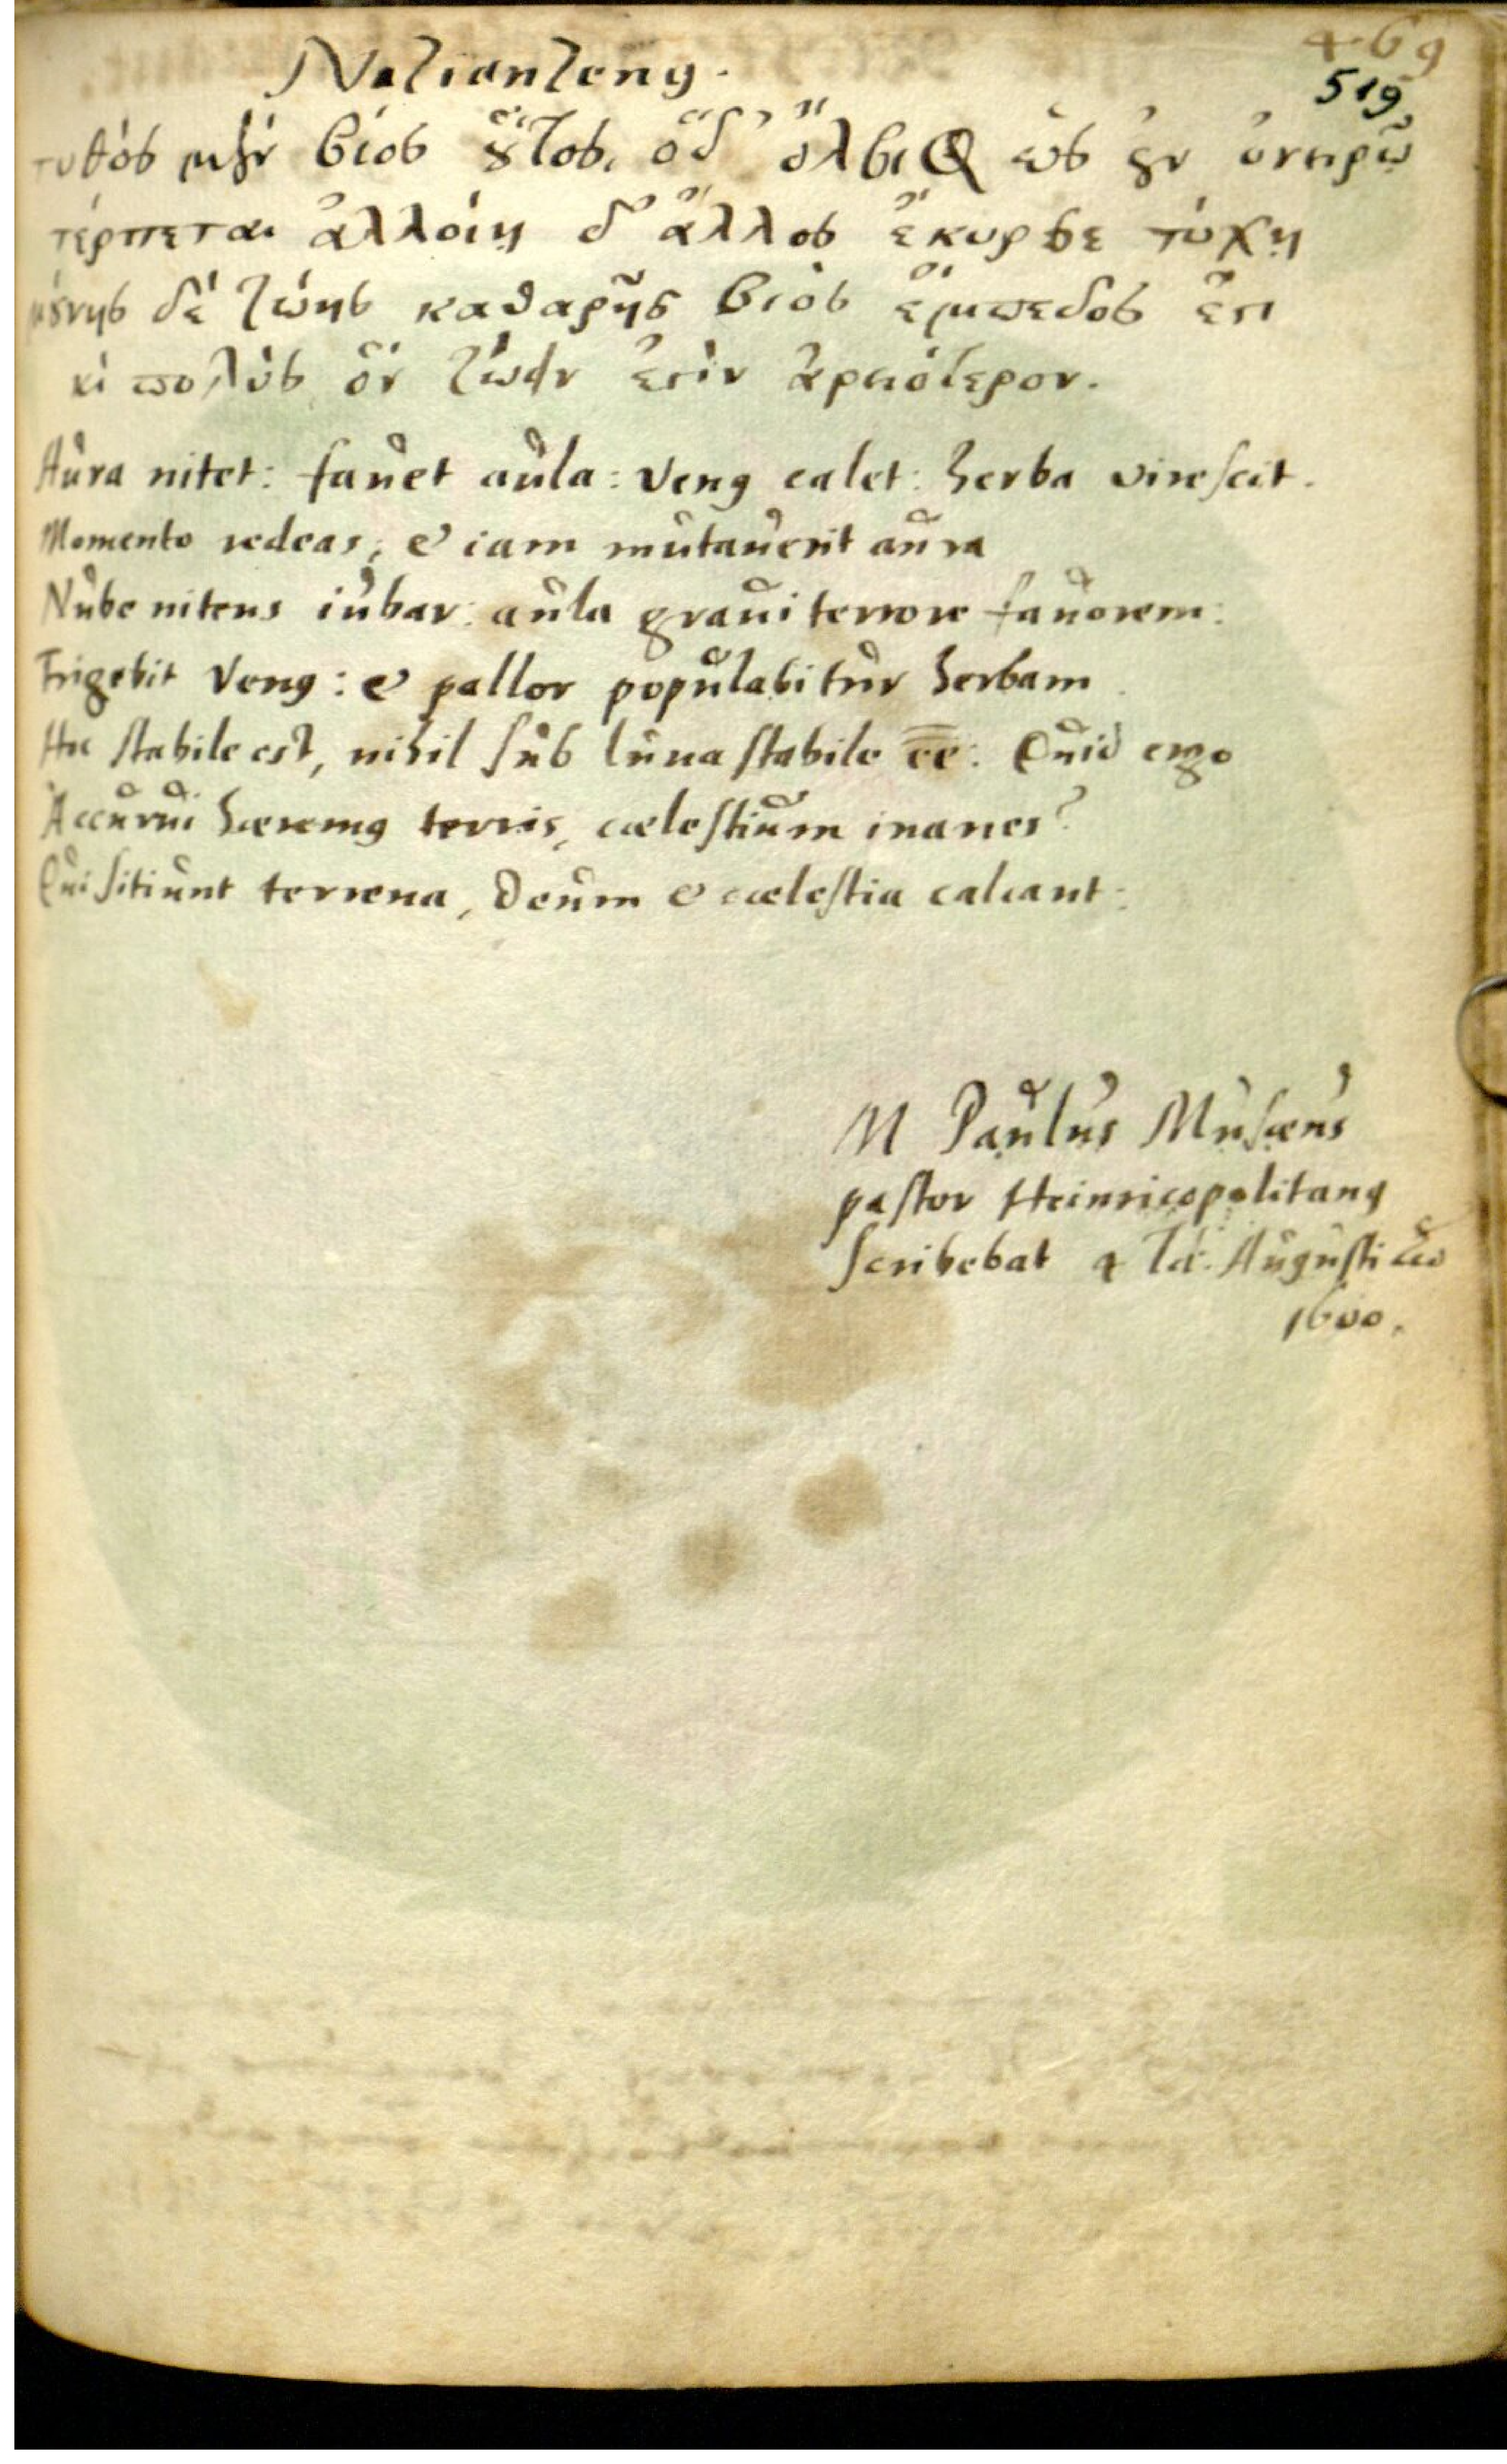 469
519
Nazianzenꝰ.
τυθὸς μὲν βίος ȣ̃τος, ὅδ' ὄλβιος ὡς ἐν ὀνείρῳ
τέρπεται ἀλλοίῃ δ' ἄλλος ἔκυρσε τύχῃ
μȣ́νης δὲ ζώης καθαρῆς βιὸς ἔμπεδος ἔϛι
κὶ πολὺς ὃν ζώειν ἐϛὶν ἀρειότερον.
Aura nitet: fauet aula: Venꝰ calet: herba virescit.
Momento redeas, & iam mutauerit aura
Nube nitens iubar: aula graui terrore fauorem:
Frigebit Venꝰ: & pallor populabitur herbam
Hoc stabile est, nihil sub luna stabile ēē: Quid ergo
Accurui hæremꝰ terris, cælestium inanes?
Qui sitiunt terrena, Deum & cælestia calcant:
M Paulus Musæus
pastor Heinricopolitanꝰ
scribebat 4 Id. Augusti
1600.